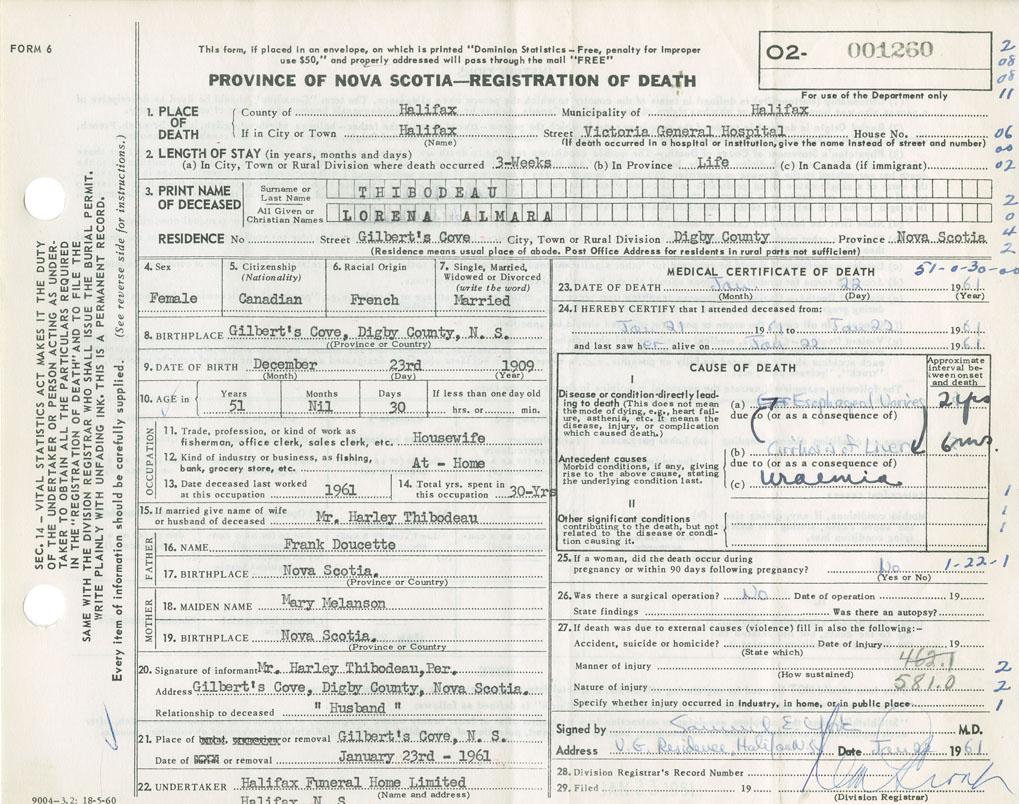 FORM 6
This form, if placed in an envelope, on which is printed "Dominion Statistics – Free, penalty for improper
use $50," and properly addressed will pass through the mail "FREE"
PROVINCE OF NOVA SCOTIA—REGISTRATION OF DEATH
02- 001260
For use of the Department only
2
08
08
11
06
00
02
2
0
4
2
SEC. 14 – VITAL STATISTICS ACT MAKES IT THE DUTY
OF THE UNDERTAKER OR PERSON ACTING AS UNDER-
TAKER TO OBTAIN ALL THE PARTICULARS REQUIRED
IN THE "REGISTRATION OF DEATH" AND TO FILE THE
SAME WITH THE DIVISION REGISTRAR WHO SHALL ISSUE THE BURIAL PERMIT.
WRITE PLAINLY WITH UNFADING INK. THIS IS A PERMANENT RECORD.
Every item of information should be carefully supplied. (See reverse side for instructions.)
1. PLACE OF DEATH
County of Halifax Municipality of Halifax
If in City or Town Halifax Street Victoria General Hospital House No.
(Name) (If death occurred in a hospital or institution, give the name instead of street and number)
2. LENGTH OF STAY (in years, months and days)
(a) In City, Town or Rural Division where death occurred 3-Weeks (b) In Province Life (c) In Canada (if immigrant)
3. PRINT NAME OF DECEASED
Surname or Last Name THIBODEAU
All Given or Christian Names LORENA ALMARA
RESIDENCE No Street Gilbert's Cove City, Town or Rural Division Digby County Province Nova Scotia
(Residence means usual place of abode. Post Office Address for residents in rural parts not sufficient)
4. Sex Female
5. Citizenship (Nationality) Canadian
6. Racial Origin French
7. Single, Married, Widowed or Divorced (write the word) Married
8. BIRTHPLACE Gilbert's Cove, Digby County, N. S.
(Province or Country)
9. DATE OF BIRTH December 23rd 1909
(Month) (Day) (Year)
10. AGE in Years Months Days If less than one day old
51 Nil 30 hrs. or min.
OCCUPATION
11. Trade, profession, or kind of work as
fisherman, office clerk, sales clerk, etc. Housewife
12. Kind of industry or business, as fishing,
bank, grocery store, etc. At - Home
13. Date deceased last worked
at this occupation 1961
14. Total yrs. spent in
this occupation 30-Yrs
15. If married give name of wife
or husband of deceased Mr. Harley Thibodeau
FATHER
16. NAME Frank Doucette
17. BIRTHPLACE Nova Scotia.
(Province or Country)
MOTHER
18. MAIDEN NAME Mary Melanson
19. BIRTHPLACE Nova Scotia.
(Province or Country
20. Signature of informant Mr. Harley Thibodeau, Per.
Address Gilbert's Cove, Digby County, Nova Scotia.
Relationship to deceased " Husband "
21. Place of burial, cremation or removal Gilbert's Cove, N. S.
Date of burial or removal January 23rd - 1961
22. UNDERTAKER Halifax Funeral Home Limited
(Name and address)
Halifax N. S.
9004–3.2: 18-5-60
MEDICAL CERTIFICATE OF DEATH 51-0-30-00
23. DATE OF DEATH Jan 22 1961
(Month) (Day) (Year)
24. I HEREBY CERTIFY that I attended deceased from:
Jan 21 1961 to Jan 22 1961
and last saw her alive on Jan 22 1961
CAUSE OF DEATH
Approximate interval between onset and death
I
Disease or condition directly lead-
ing to death (This does not mean
the mode of dying, e.g., heart fail-
ure, asthenia, etc. It means the
disease, injury, or complication
which caused death.)
(a) Esophageal Varices 2 yrs
due to (or as a consequence of)
(b) Cirrhosis of Liver 6 mos
Antecedent causes
Morbid conditions, if any, giving
rise to the above cause, stating
the underlying condition last.
due to (or as a consequence of)
(c) Uraemia
II
Other significant conditions
contributing to the death, but not
related to the disease or condi-
tion causing it.
1
1
1
25. If a woman, did the death occur during
pregnancy or within 90 days following pregnancy? No 1-22-1
(Yes or No)
26. Was there a surgical operation? No Date of operation 19
State findings Was there an autopsy?
27. If death was due to external causes (violence) fill in also the following:–
Accident, suicide or homicide? Date of injury 19
(State which) 462.1
Manner of injury 2
(How sustained)
Nature of injury 581.0 2
Specify whether injury occurred in industry, in home, or in public place. 1
Signed by M.D.
Address V.G. Residence Halifax N.S. Date Jan 1961
28. Division Registrar's Record Number
29. Filed 19
(Division Registrar)